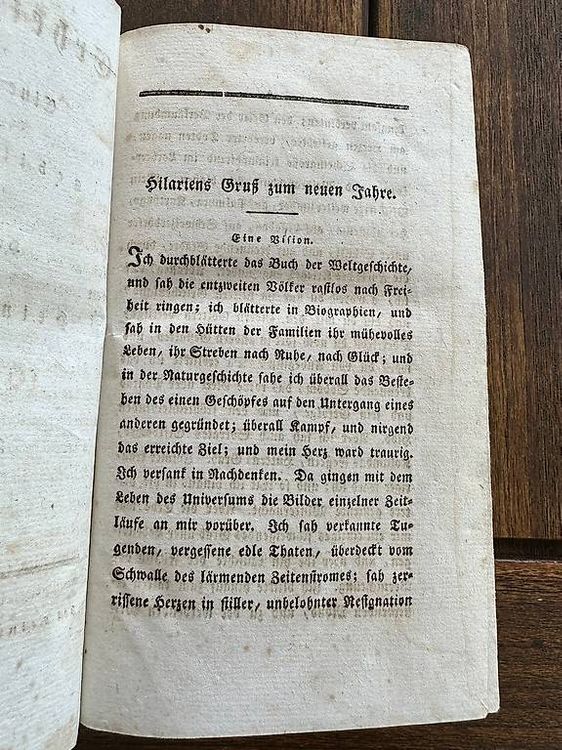 Hilariens Gruß zum neuen Jahre.
Eine Vision.
Ich durchblätterte das Buch der Weltgeschichte,
und sah die entzweiten Völker rastlos nach Frei-
heit ringen; ich blätterte in Biographien, und
sah in den Hütten der Familien ihr mühevolles
Leben, ihr Streben nach Ruhe, nach Glück; und
in der Naturgeschichte sahe ich überall das Beste-
hen des einen Geschöpfes auf den Untergang eines
anderen gegründet; überall Kampf, und nirgend
das erreichte Ziel; und mein Herz ward traurig.
Ich versank in Nachdenken. Da gingen mit dem
Leben des Universums die Bilder einzelner Zeit-
läufe an mir vorüber. Ich sah verkannte Tu-
genden, vergessene edle Thaten, überdeckt vom
Schwalle des lärmenden Zeitenstromes; sah zer-
rissene Herzen in stiller, unbelohnter Resignation